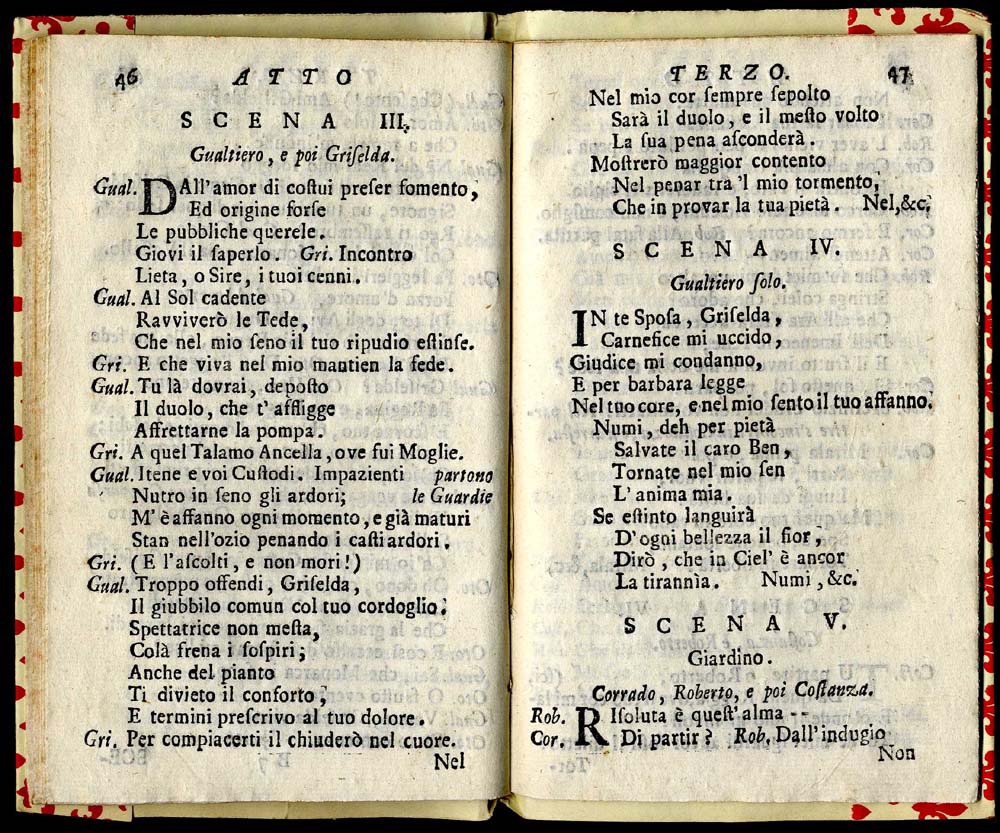 46 ATTO
SCENA III.
Gualtiero, e poi Griſelda.
Gual. DAll'amor di coſtui preſer fomento,
Ed origine forſe
Le pubbliche querele.
Giovi il ſaperlo. Gri. Incontro
Lieta, o Sire, i tuoi cenni.
Gual. Al Sol cadente
Ravviverò le Tede,
Che nel mio ſeno il tuo ripudio eſtinſe.
Gri. E che viva nel mio mantien la fede.
Gual. Tu là dovrai, depoſto
Il duolo, che t'affligge
Affrettarne la pompa.
Gri. A quel Talamo Ancella, ove fui Moglie.
Gual. Itene e voi Cuſtodi. Impazienti partono
Nutro in ſeno gli ardori; le Guardie
M'è affanno ogni momento, e già maturi
Stan nell'ozio penando i caſti ardori.
Gri. (E l'aſcolti, e non mori!)
Gual. Troppo offendi, Griſelda,
Il giubbilo comun col tuo cordoglio.
Spettatrice non meſta,
Colà frena i ſoſpiri;
Anche del pianto
Ti divieto il conforto;
E termini preſcrivo al tuo dolore.
Gri. Per compiacerti il chiuderò nel cuore.
Nel
TERZO. 47
Nel mio cor ſempre ſepolto
Sarà il duolo, e il meſto volto
La ſua pena aſconderà.
Moſtrerò maggior contento
Nel penar tra 'l mio tormento,
Che in provar la tua pietà. Nel,&c.
SCENA IV.
Gualtiero ſolo.
IN te Spoſa, Griſelda,
Carnefice mi uccido,
Giudice mi condanno,
E per barbara legge
Nel tuo core, e nel mio ſento il tuo affanno.
Numi, deh per pietà
Salvate il caro Ben,
Tornate nel mio ſen
L'anima mia.
Se eſtinto languirà
D'ogni bellezza il fior,
Dirò, che in Ciel' è ancor
La tirannia. Numi, &c.
SCENA V.
Giardino.
Corrado, Roberto, e poi Coſtanza.
Rob. RIſoluta è queſt'alma --
Cor. Di partir? Rob. Dall'indugio
Non